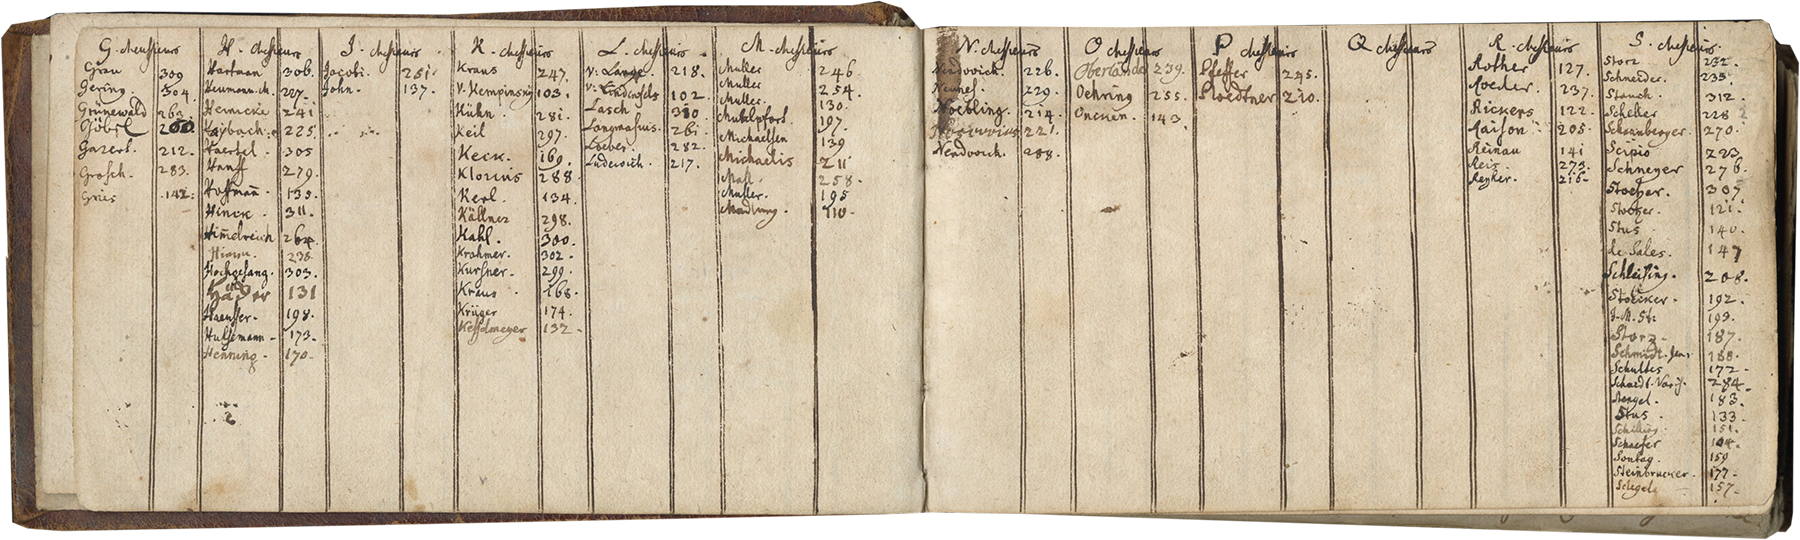 G. Messieurs
Grau 309
Gering. 304
Grünewald 263
Göbel 260
Gazert. 212.
Grosch. 283.
Gries 142.
H. Messieurs
Hartman 306.
Heumann. 227.
Heinicke 241
Haybach. 225.
Haertel. 305
Hanff 279.
Hoffmañ. 135.
Hinck. 311.
Him̃elreich 264.
Himm. 238.
Hochgesang. 303.
131
Haenser. 198.
Hulsemann. 173.
Henning. 170.
I. Messieurs
Jacobi. 251.
John. 137.
K. Messieurs
Kraus 247.
v. Kempinsky 103.
Kühn. 281.
Keil 297.
Keck. 169.
Klonus 288.
Kerl. 134.
Källner 298.
Kahl. 300.
Krohmer. 302.
Kurssner. 299.
Kraus. 168.
Krüger 174.
Kesselmeyer 132.
L. Messieurs
v. Lange. 218.
v. 102.
Lasch. 310
Langmasius. 261.
Loeber. 282.
Luderoich. 217.
M. Messieurs
Muller 246.
Muller 254.
Muller. 130.
Muhlpfort. 197.
Michaelsen 139
Michaelis 211
Mast. 258.
Muller. 195
Madlung. 110.
N. Messieurs
226.
229.
Noebling. 214.
221.
288.
O Messieurs
Oberlände 239.
Oehring 255.
Oncken. 143.
P Messieurs
Pfeffer 245.
Ploedtner 210.
Q Messieurs
R. Messieurs
Rother 127.
Roeder. 237.
Rickers 122.
Raison 205.
Reinau 141
Reis. 273.
Reyher. 215.
S. Messieurs.
Storz 232.
Schneider. 235.
Stauch. 312.
Scheller 228
Schaumberger. 270.
Scipio 223
Schneyer 276.
Stoetzer. 307
Stoetzer. 121.
Stus. 140.
de Sales. 147
Schleising. 208.
Stoecker. 192.
J. M. St: 193.
Storz. 187.
Schmidt. Jen: 188.
Schultes 172.
284.
Stengel. 183.
Stus. 133.
Schilling. 151.
Schaefer 104.
Sontag. 159
Steinbrucker. 177.
Schlegel 157.